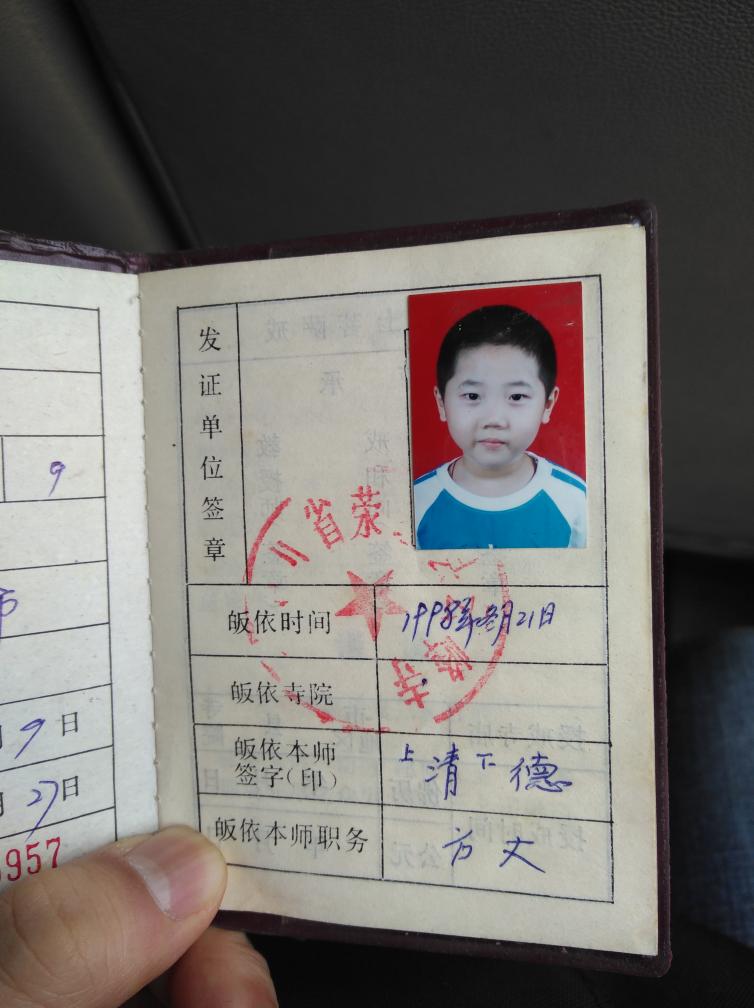 9
市
9日
27日
957
发证单位签章
省荥
寺
皈依时间 1998年8月21日
皈依寺院
皈依本师
签字(印) 上清下德
皈依本师职务 方丈